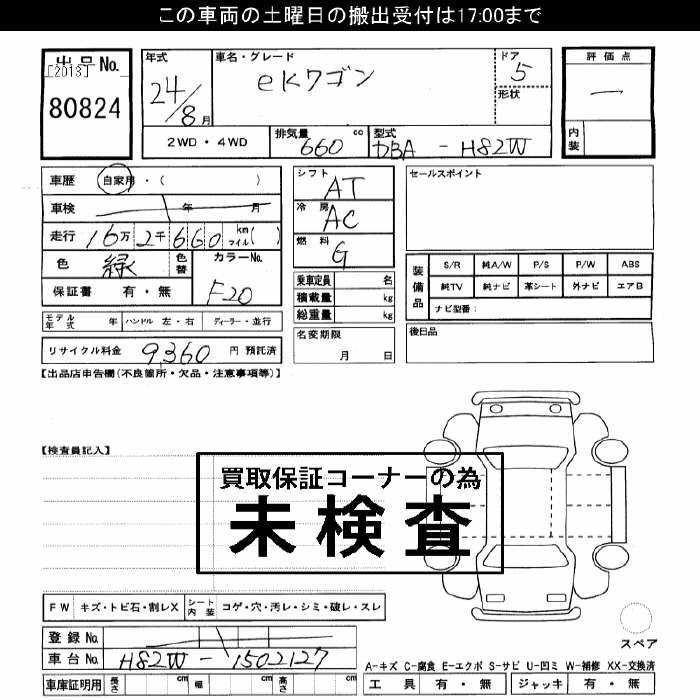 この車両の土曜日の搬出受付は17:00まで
出品No.
[2013]
80824
年式
24/8月
車名・グレード
eKワゴン
ドア
5
形状
評価点
—
内装
2WD・4WD
排気量
660 cc
型式
DBA - H82W
車歴 自家用・( )
車検 年 月
走行 16万2千660 km マイル( )
色 緑 色替
カラーNo.
F20
保証書 有・無
モデル年式 年 ハンドル 左・右 ディーラー・並行
リサイクル料金 9,360 円 預託済
シフト
AT
冷房
AC
燃料
G
乗車定員 名
積載量 kg
総重量 kg
名変期限
月 日
セールスポイント
装備品
S/R 純A/W P/S P/W ABS
純TV 純ナビ 革シート 外ナビ エアB
ナビ型番:
後日品
【出品店申告欄(不良箇所・欠品・注意事項等)】
【検査員記入】
買取保証コーナーの為
未検査
FW キズ・トビ石・割レX シート内装 コゲ・穴・汚レ・シミ・破レ・スレ
登録No.
車台No. H82W-1502127
車庫証明用 長さ cm 幅 cm 高さ cm
スペア
A-キズ C-腐食 E-エクボ S-サビ U-凹ミ W-補修 XX-交換済
工具 有・無 ジャッキ 有・無